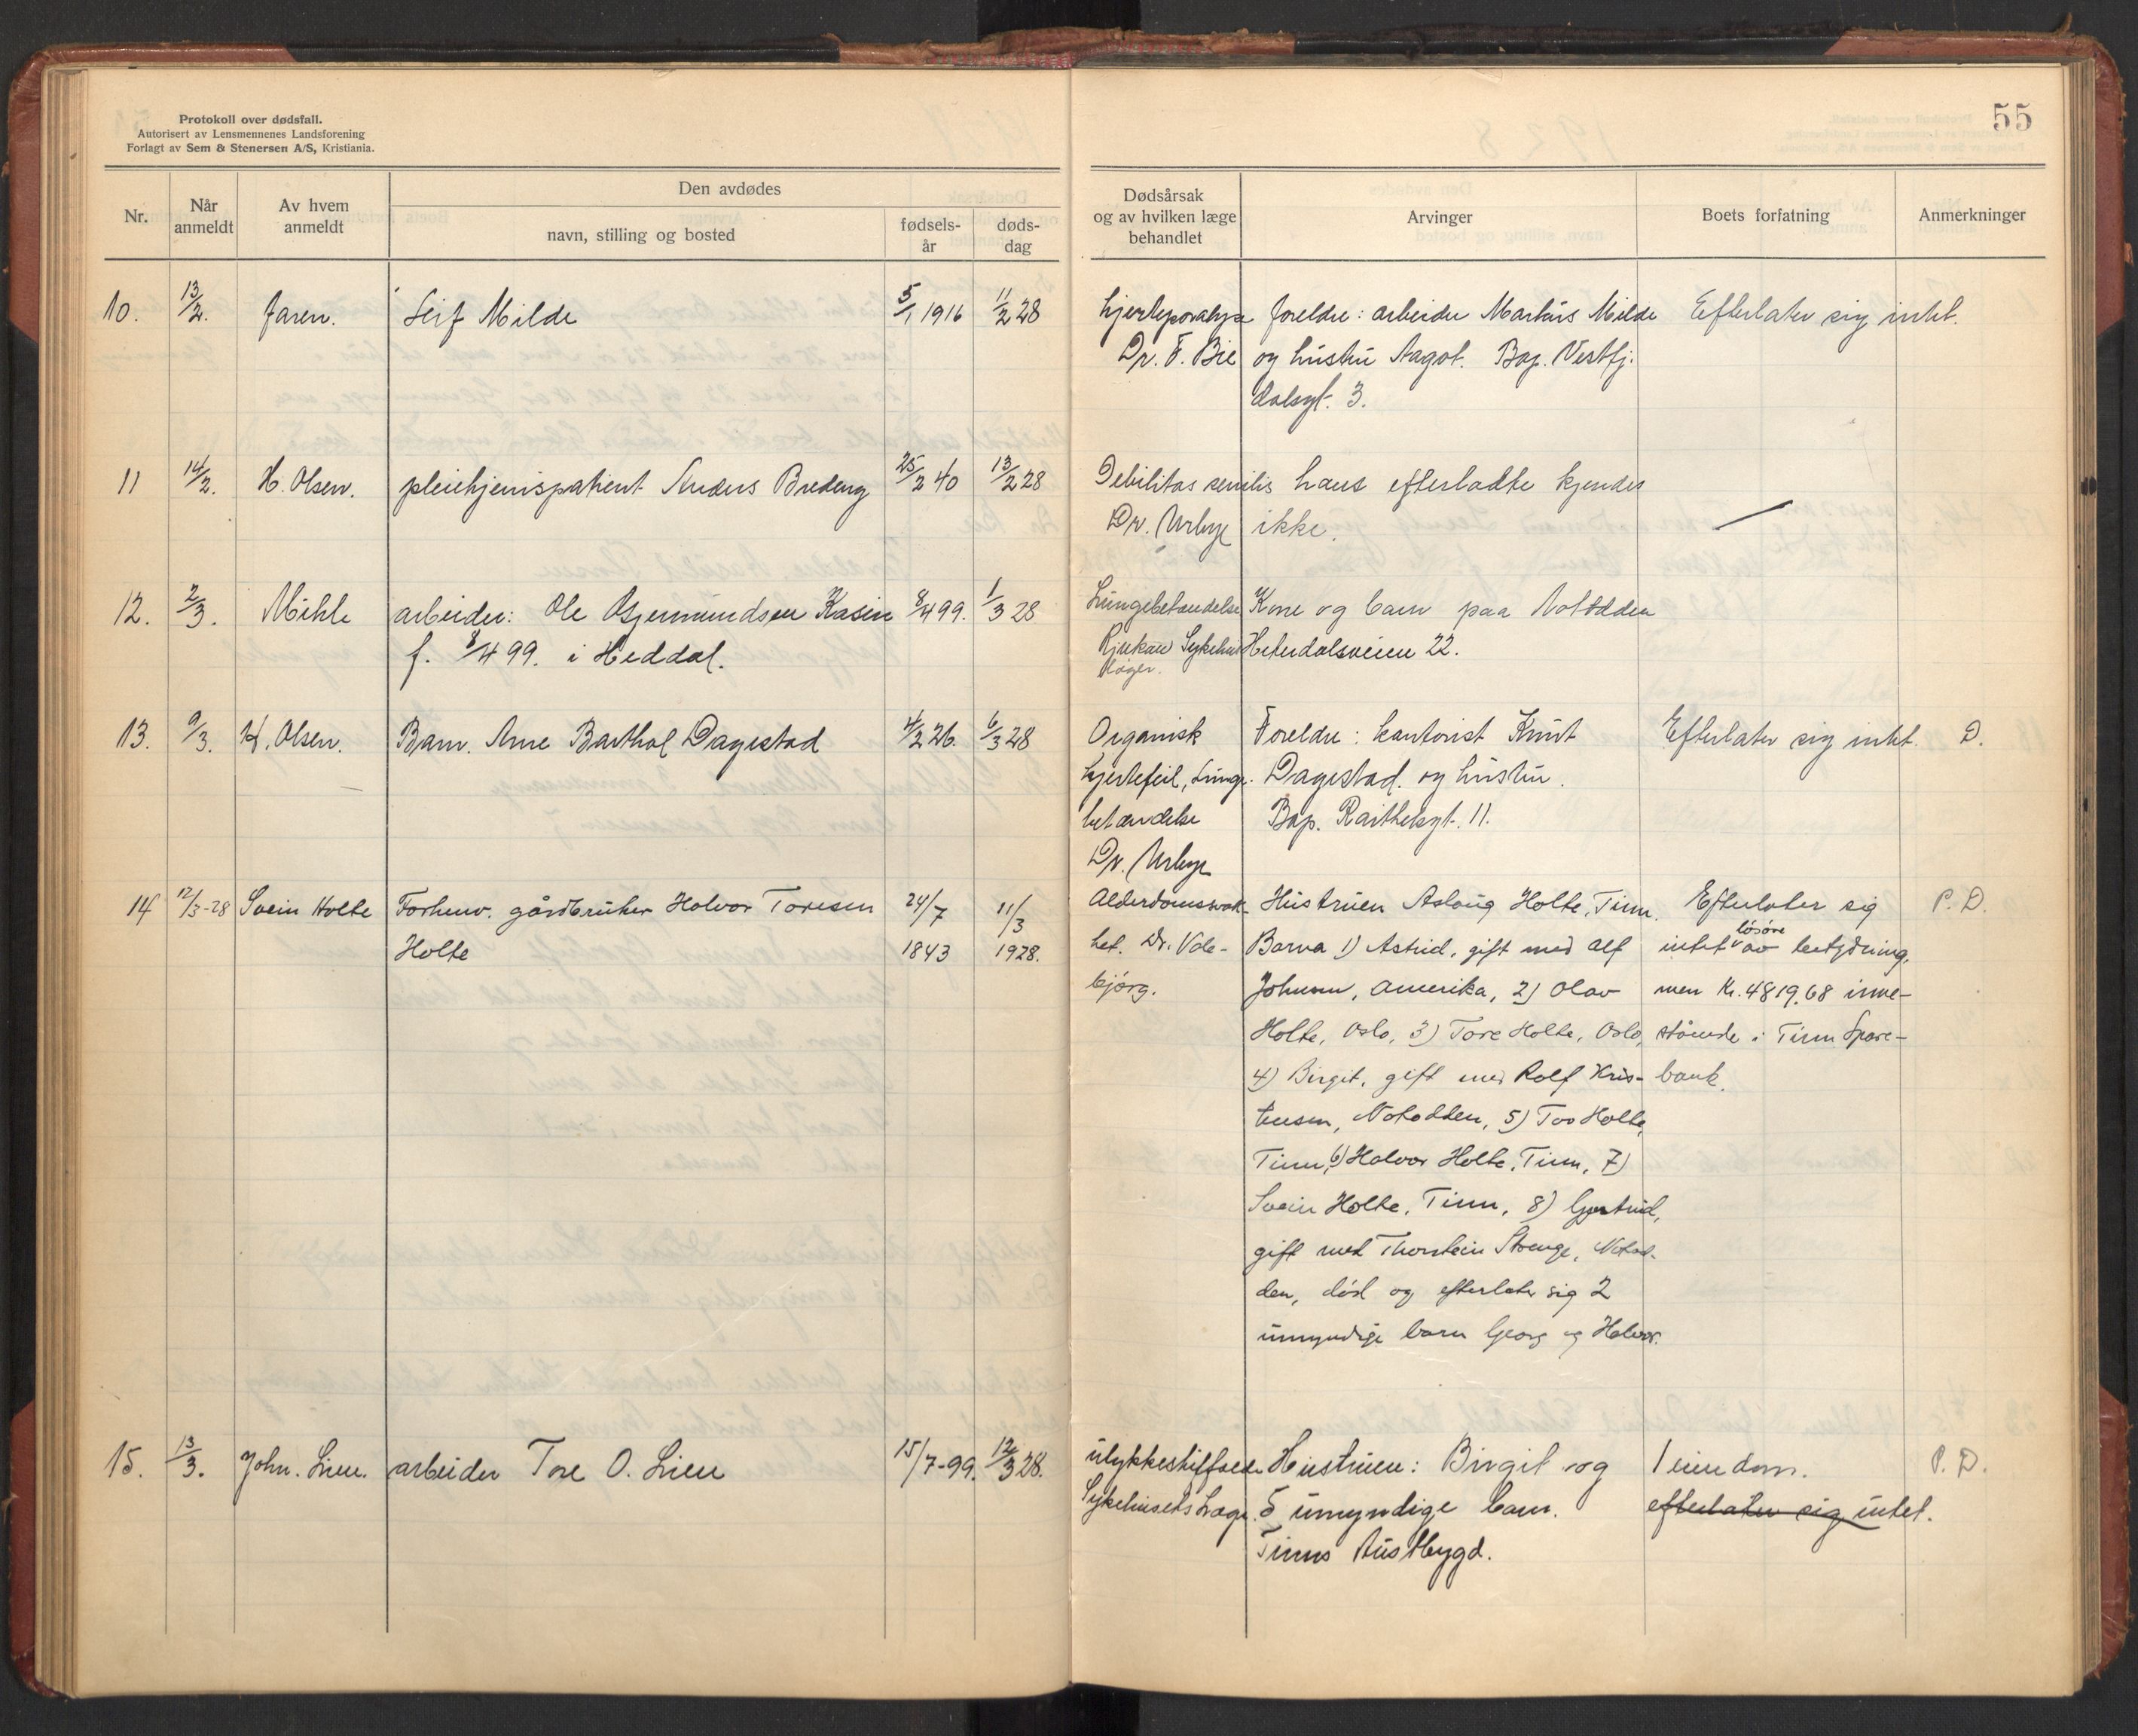 Protokoll over dødsfall.
Autorisert av Lensmennenes Landsforening
Forlagt av Sem & Stenersen A/S, Kristiania.
55
Nr.
Når anmeldt
Av hvem anmeldt
Den avdødes
navn, stilling og bosted
fødsels-år
døds-dag
Dødsårsak og av hvilken læge behandlet
Arvinger
Boets forfatning
Anmerkninger
10. 13/2. faren. Leif Milde 5/1 1916 11/2 28 Hjerteparalyse foreldre: arbeider Markus Milde Efterlater sig intet.
Dr. F. Bie og hustru Aagot. Bop. Vestfj.
dalsgt. 3.
11 14/2. H. Olsen. pleiehjemspatient Anders 25/2 40 13/2 28 Debilitas senilis hans efterladte kjendes
Dr. Urbye ikke. —
12. 2/3. arbeider: Ole Gjermundsen Kasin 8/4 99. 1/3 28 Lungebetændelse Kone og barn paa Notodden
f. 8/4 99. i Heddal. Rjukan Sykehus Heterdalsveien 22.
læger.
13. 9/3. H. Olsen. Barn. Arne Barthol Dagestad 4/2 26. 6/3 28 Organisk Foreldre: kontorist Knut Efterlater sig intet. D.
hjertefeil, Lunge- Dagestad. og hustru.
betændelse Bop. 11.
Dr. Urbye
14 12/3-28 Svein Holte Forhenv. gårdbruker Halvor Toresen 24/7 11/3 Alderdomssvak- Hustruen Aslaug Holte, Tinn. Efterlater sig P. D.
Holte 1843 1928. het. Dr. Vale- Barna 1) Astrid, gift med Alf intet løsøre av betydning,
bjørg. Johnsen, Amerika, 2) Olav men Kr. 4819,68 inne-
Holte, Oslo, 3) Tore Holte, Oslo, stående i Tinn Spare-
4) Birgit, gift med Rolf Kris- bank.
tensen, Notodden, 5) Tov Holte,
Tinn, 6) Halvor Holte, Tinn, 7)
Svein Holte, Tinn, 8) Gjertrud,
gift med Thorstein Stenge, Notod-
den, død og efterlater sig 2
umyndige barn Georg og Halvor.
15. 13/3. John. Lien. arbeider Tore O. Lien 15/7-99. 12/3 28. ulykkestilfælde Hustruen: Birgit og 1 eiendom. P. D.
Sykehusets Læge. 5 umyndige barn. efterlater sig intet.
Tinns Austbygd.